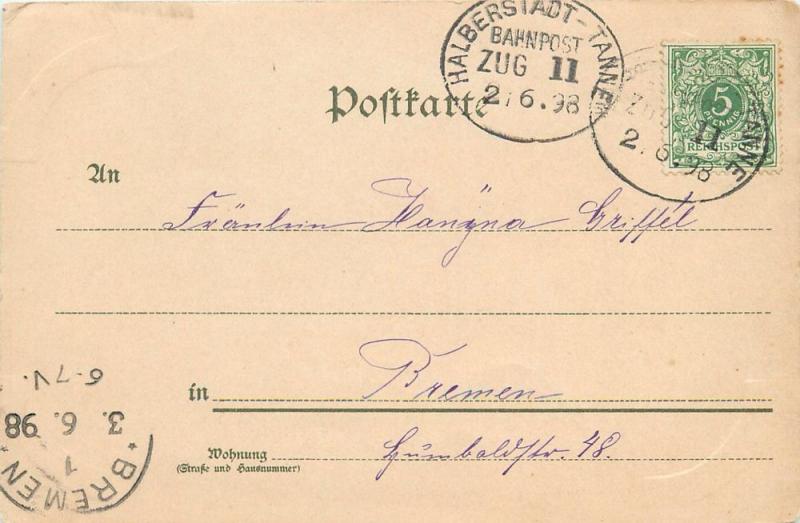 HALBERSTADT-TANNE
BAHNPOST
ZUG 11
2.6.98
5
PFENNIG
REICHSPOST
TANNE
ZUG 11
2.6.98
Postkarte
An
Fräulein Griffel
in Bremen
Wohnung Humboldtstr. 48.
(Straße und Hausnummer)
6-7V.
3. 6. 98
1
*BREMEN*